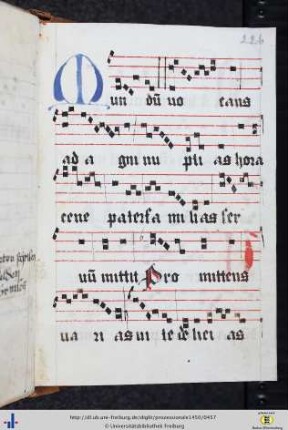 226
Mun dū uo cans
ad a gni nu pti as hora
cene paterfa mi li as ser
uū mittit Pro mittens
ua ri as ui te de lici as
http://dl.ub.uni-freiburg.de/diglit/prozessionale1450/0457
© Universitätsbibliothek Freiburg